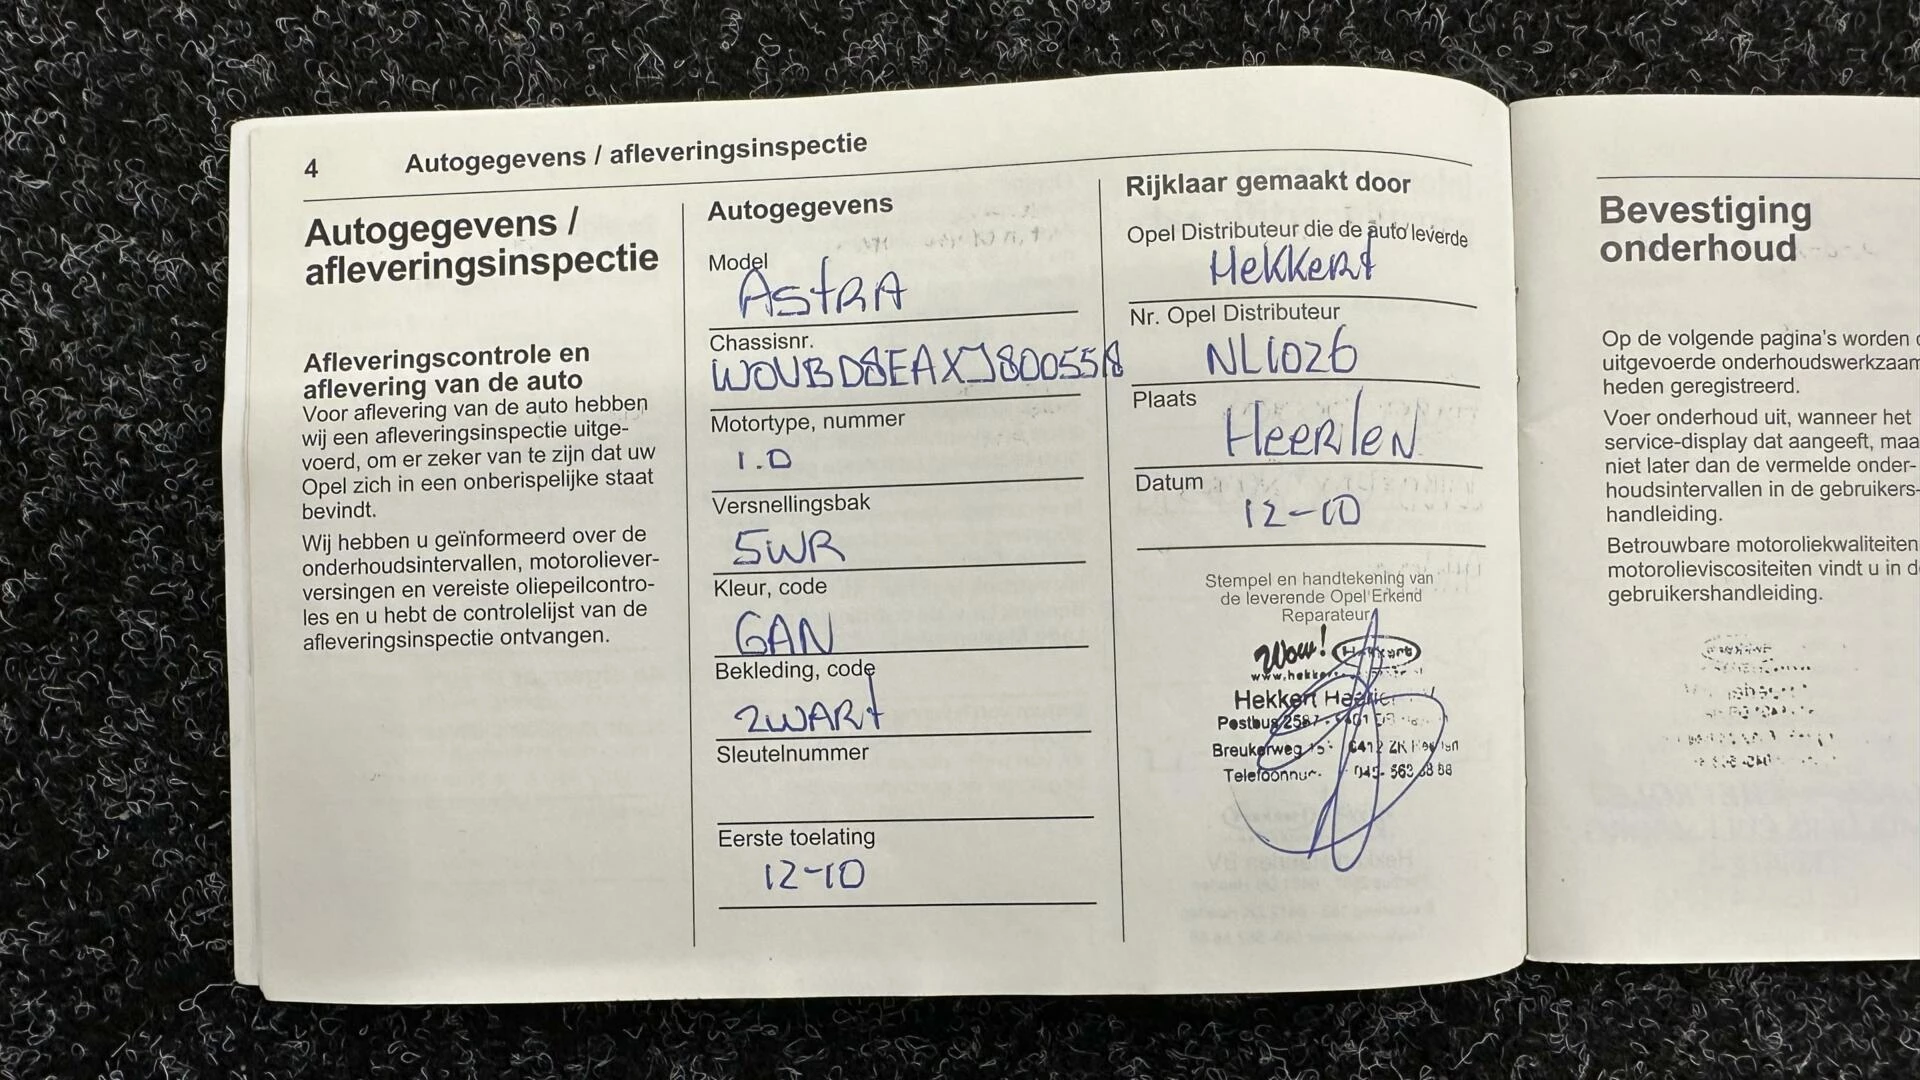 4
Autogegevens / afleveringsinspectie
Autogegevens /
afleveringsinspectie
Afleveringscontrole en
aflevering van de auto
Voor aflevering van de auto hebben
wij een afleveringsinspectie uitge-
voerd, om er zeker van te zijn dat uw
Opel zich in een onberispelijke staat
bevindt.
Wij hebben u geïnformeerd over de
onderhoudsintervallen, motoroliever-
versingen en vereiste oliepeilcontro-
les en u hebt de controlelijst van de
afleveringsinspectie ontvangen.
Autogegevens
Model
ASTRA
Chassisnr.
Motortype, nummer
1.0
Versnellingsbak
5WR
Kleur, code
GAN
Bekleding, code
ZWART
Sleutelnummer
Eerste toelating
12-10
Rijklaar gemaakt door
Opel Distributeur die de auto leverde
Hekkert
Nr. Opel Distributeur
NL1026
Plaats
Heerlen
Datum
12-10
Stempel en handtekening van
de leverende Opel Erkend
Reparateur
Wow! Hekkert
Hekkert
Postbus 2587
Breukerweg
Telefoonnu
Bevestiging
onderhoud
Op de volgende pagina's worden
uitgevoerde onderhoudswerkzaam
heden geregistreerd.
Voer onderhoud uit, wanneer het
service-display dat aangeeft, maa
niet later dan de vermelde onder-
houdsintervallen in de gebruikers-
handleiding.
Betrouwbare motoroliekwaliteiten
motorolieviscositeiten vindt u in d
gebruikershandleiding.